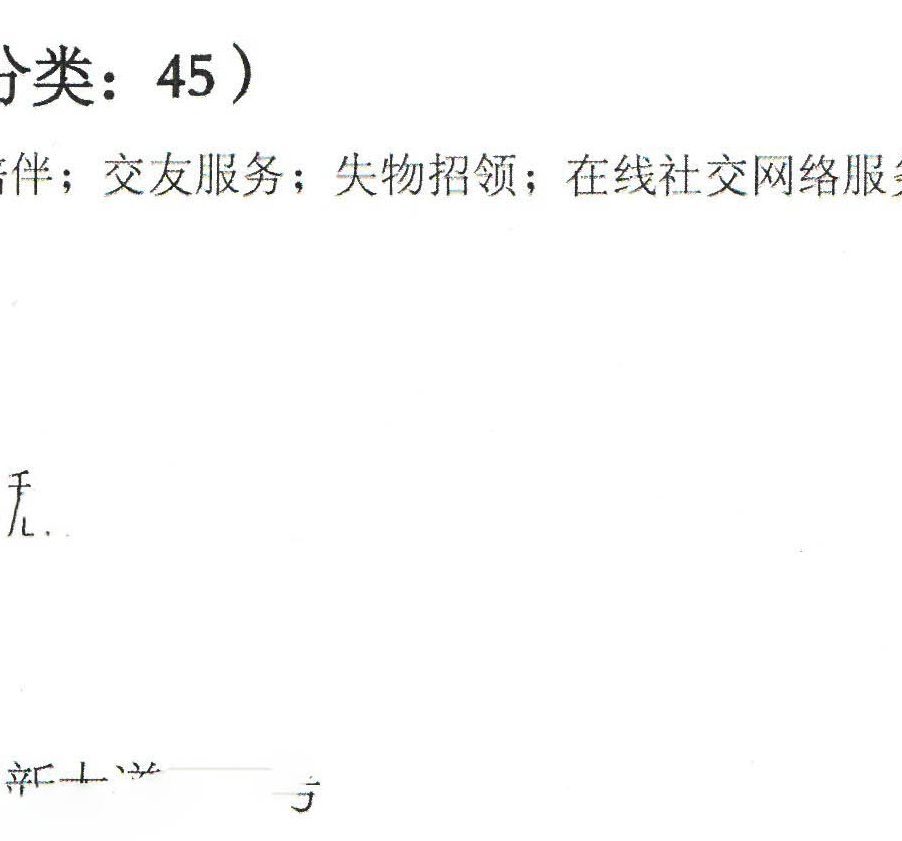 分类：45）
陪伴；交友服务；失物招领；在线社交网络服务
无.